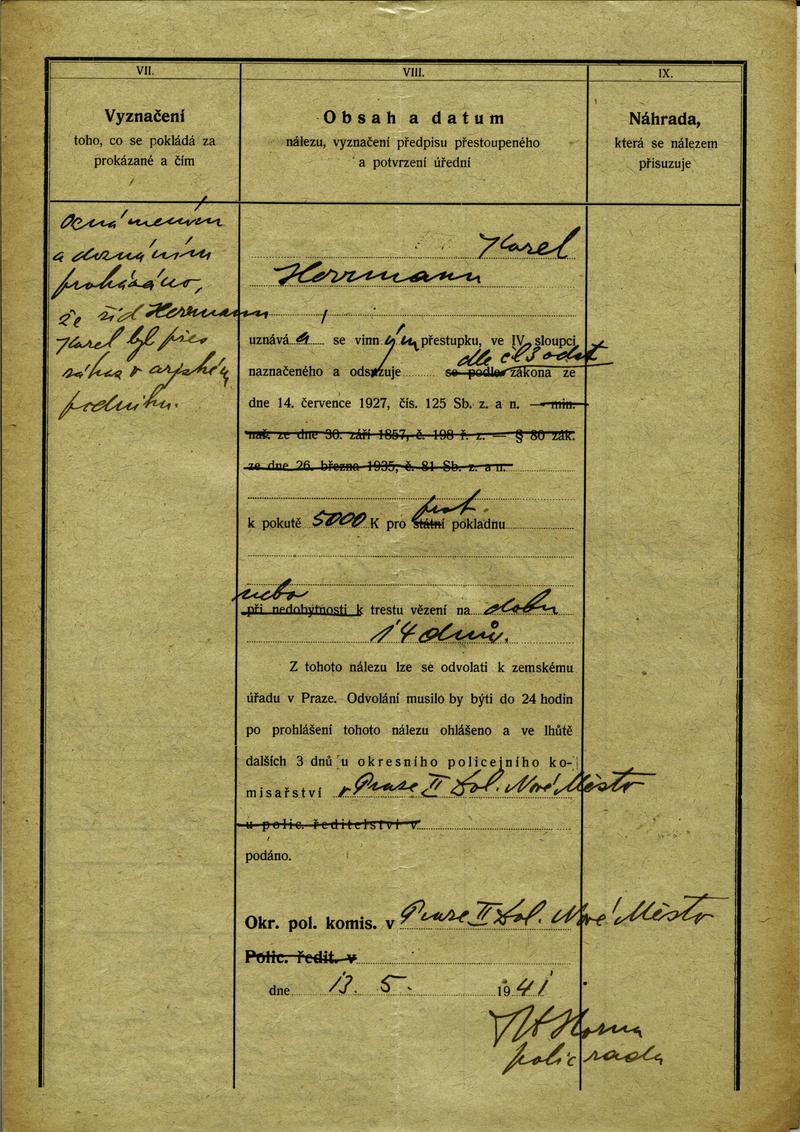 VII.
Vyznačení
toho, co se pokládá za
prokázané a čím
Oznámením
a doznáním
prokázáno,
že žid Herrmann
Karel byl přes
zákaz v arijském
podniku.
VIII.
Obsah a datum
nálezu, vyznačení předpisu přestoupeného
a potvrzení úřední
Karel
Herrmann
uznává se vinným přestupku, ve IV. sloupci
dle čl 3 odst
naznačeného a odsuzuje se podle zákona ze
dne 14. července 1927, čís. 125 Sb. z. a n. — min.
nař. ze dne 30. září 1857, č. 198 ř. z. — § 80 zák.
ze dne 26. března 1935, č. 81 Sb. z. a n.
k pokutě 5000 K pro státní pokladnu
nebo
při nedobytnosti k trestu vězení na dobu
14 dnů.
Z tohoto nálezu lze se odvolati k zemskému
úřadu v Praze. Odvolání musilo by býti do 24 hodin
po prohlášení tohoto nálezu ohlášeno a ve lhůtě
dalších 3 dnů u okresního policejního ko-
misařství v Praze II Dol. Nové Město
u polic. ředitelství v
podáno.
Okr. pol. komis. v Praze II Dol. Nové Město
Polic. ředit. v
dne 13. 5. 1941
polic rada
IX.
Náhrada,
která se nálezem
přisuzuje